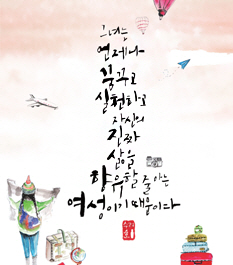 그녀는
언제나
꿈꾸고
실천하고
자신의
진짜
삶을
향유할 줄 아는
여성이기 때문이다